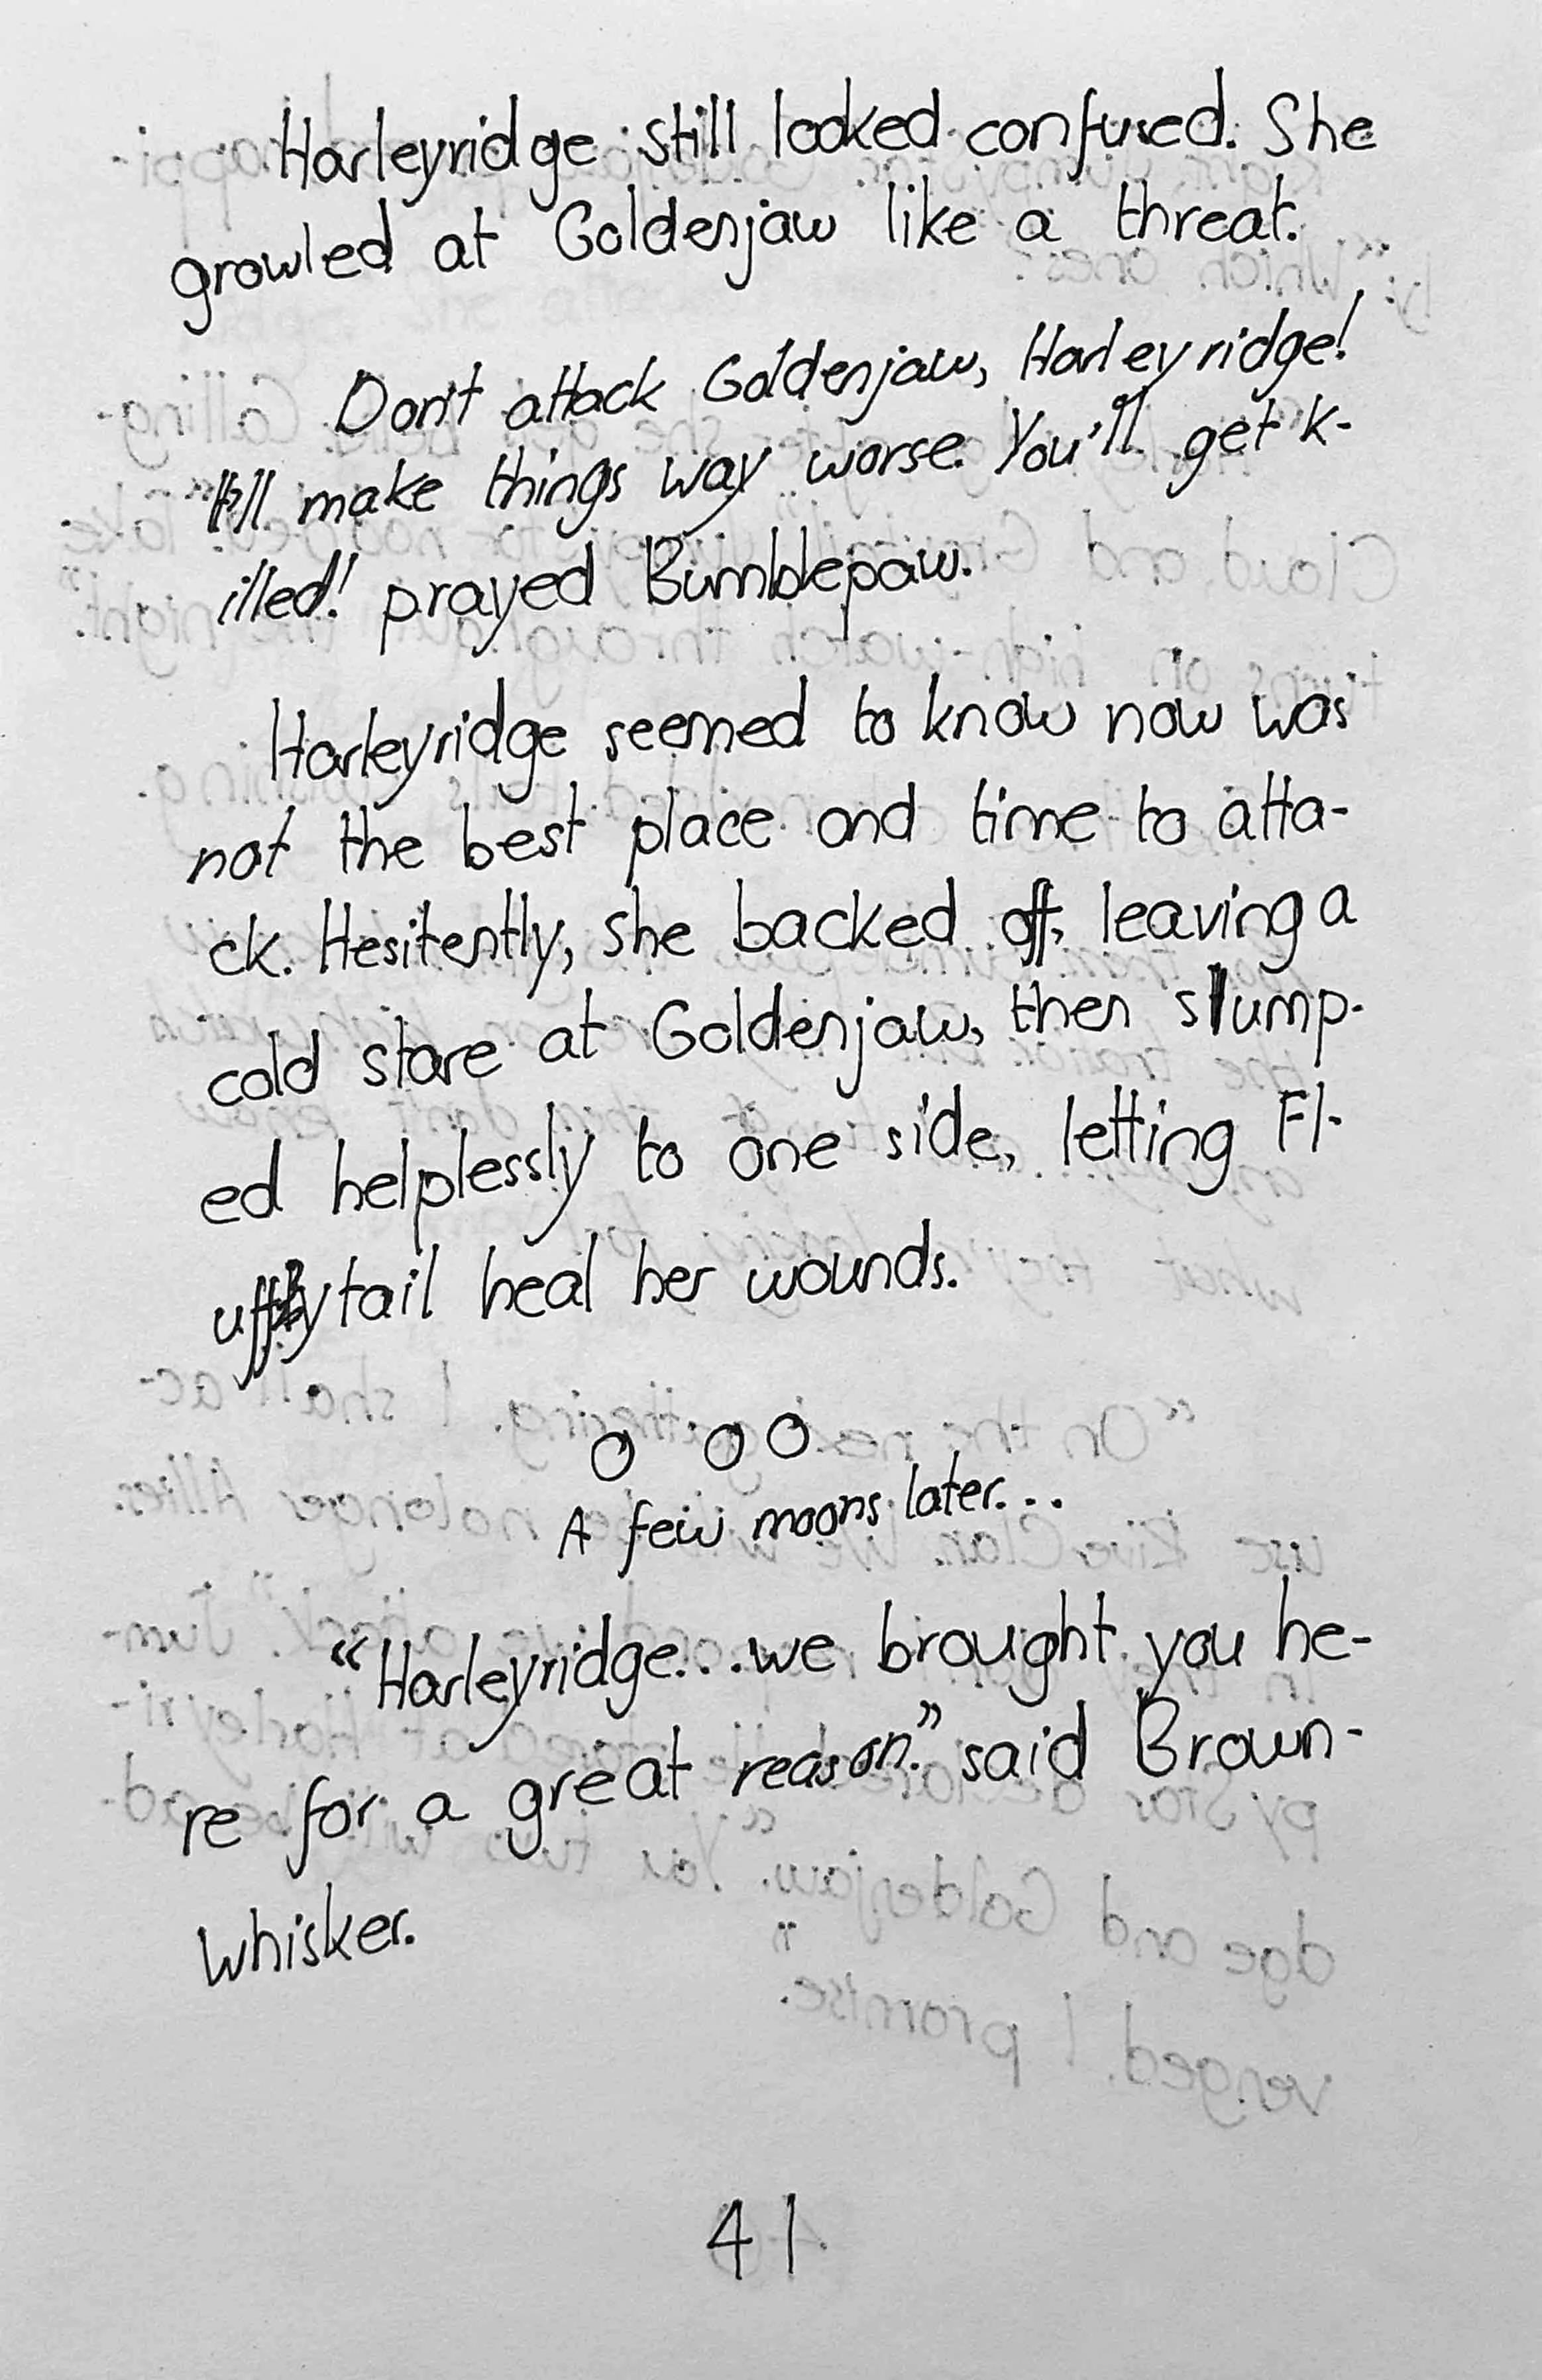 Harleyridge still looked confused. She
growled at Goldenjaw like a threat.
Don't attack Goldenjaw, Harleyridge!
I'll make things way worse. You'll get k-
illed! prayed Bumblepaw.
Harleyridge seemed to know now was
not the best place and time to atta-
ck. Hesitently, she backed off, leaving a
cold stare at Goldenjaw, then slump-
ed helplessly to one side, letting Fl-
uffytail heal her wounds.
O O O
A few moons later...
“Harleyridge...we brought you he-
re for a great reason.” said Brown-
whisker.
41